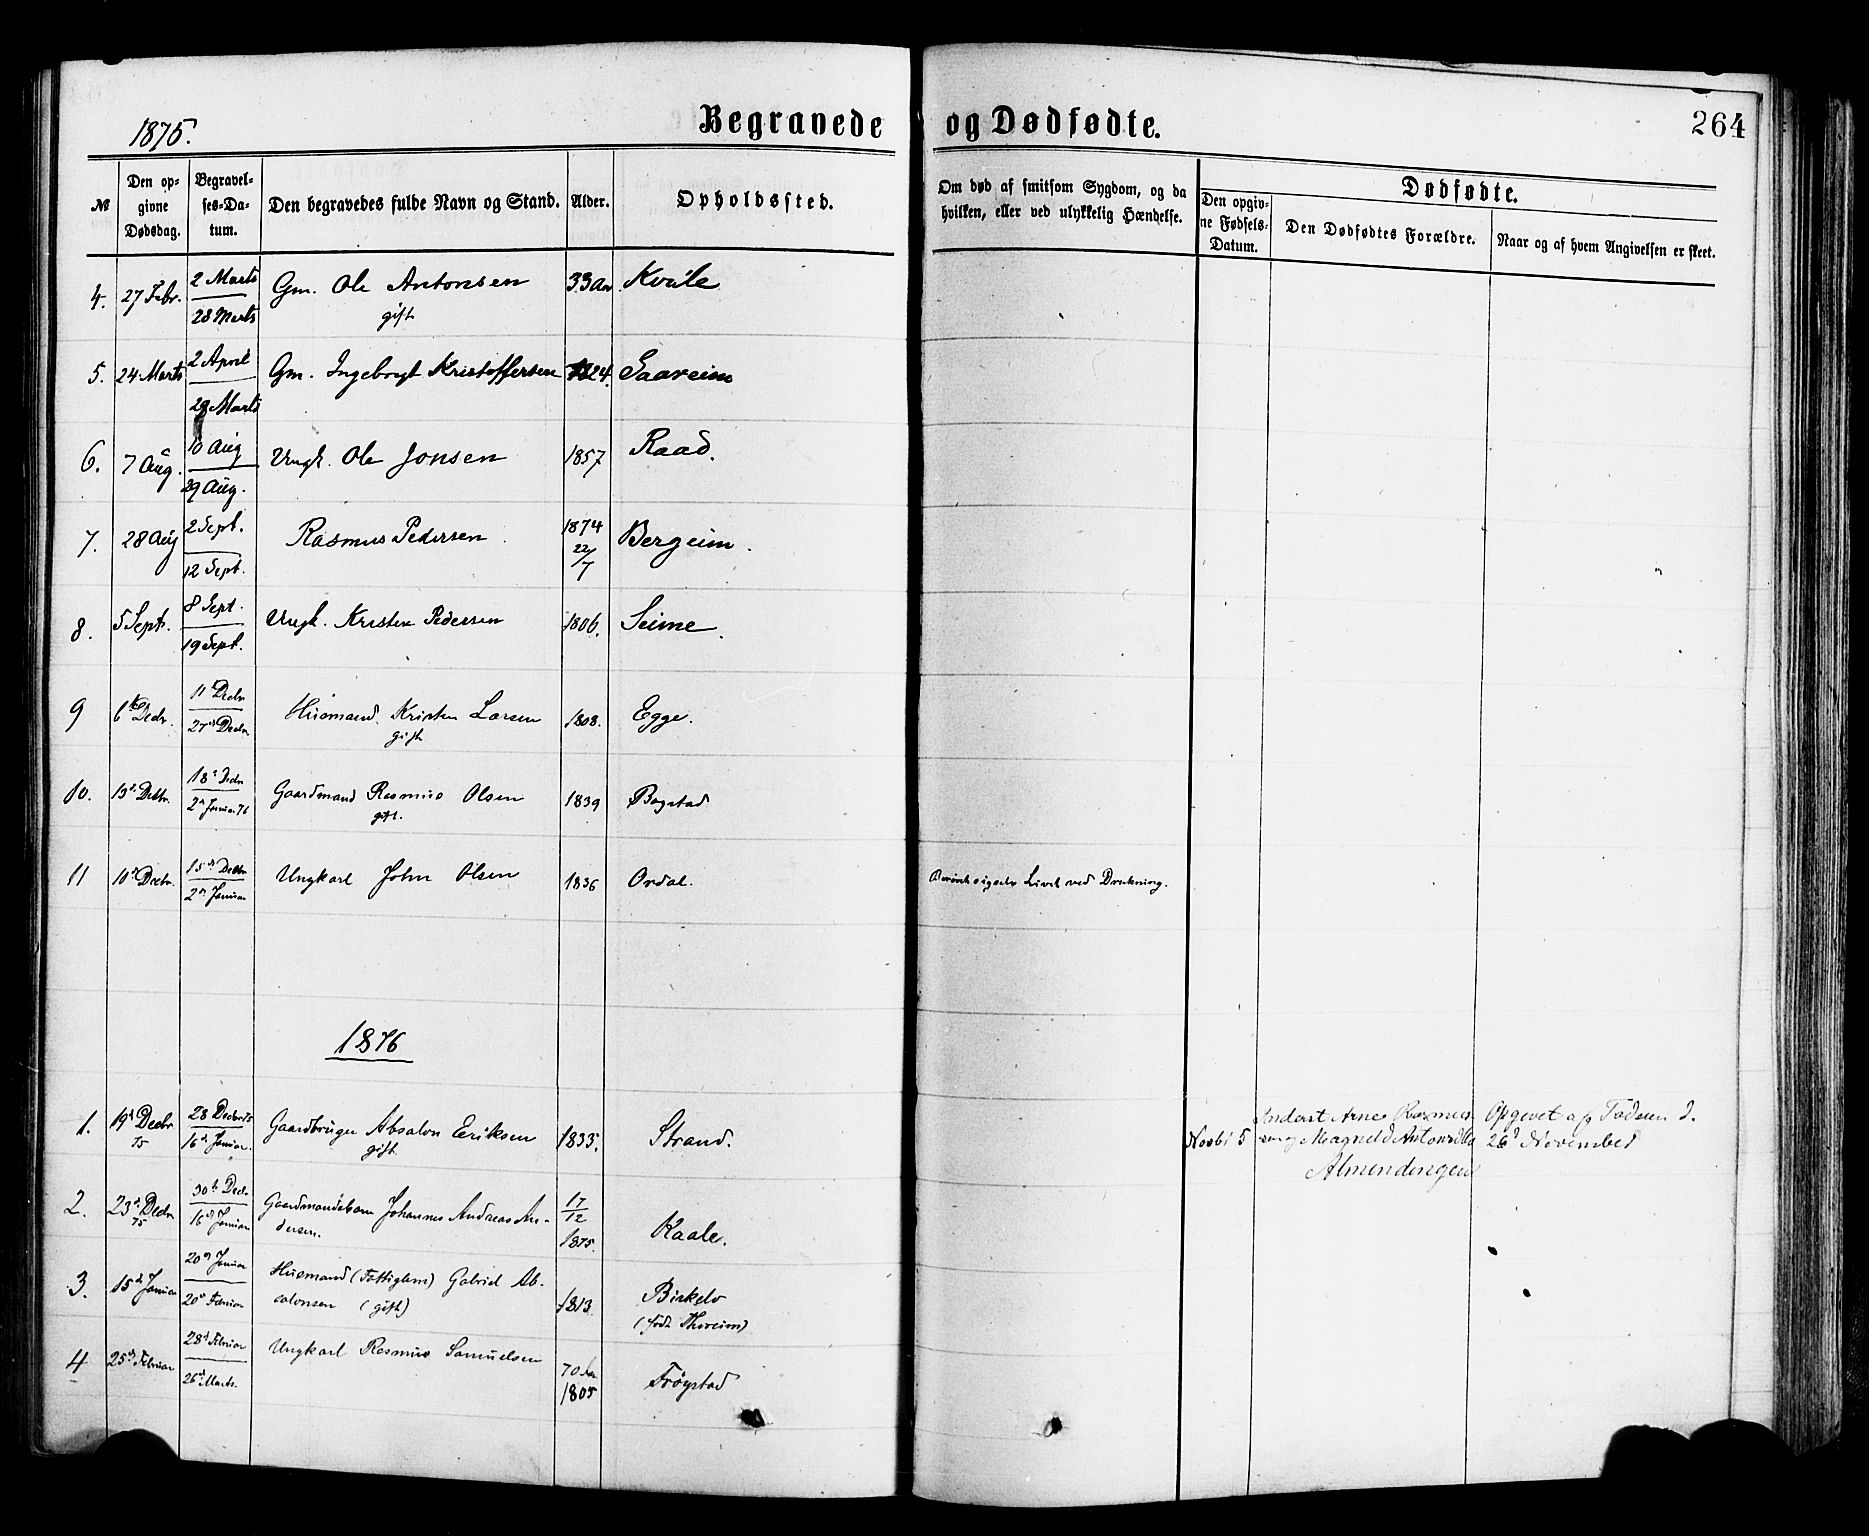 1875.
Begravede og Dødfødte.
264
№
Den opgivne Dødsdag.
Begravelses-Datum.
Den begravedes fulde Navn og Stand.
Alder.
Opholdssted.
Om død af smitsom Sygdom, og da hvilken, eller ved ulykkelig Hændelse.
Dødfødte.
Den opgivne Fødsels-Datum.
Den Dødfødtes Forældre.
Naar og af hvem Angivelsen er skeet.
4. 27 Febr. 2 Marts 28 Marts Gm. Ole Antonsen gift 33 Aar Kvile
5. 24 Marts 2 April 28 Marts Gm. Ingebrigt Kristoffersen 1824. Saareim
6. 7 Aug. 10 Aug 29 Aug. Ungk. Ole Jonsen 1857 Raad.
7. 28 Aug 2 Sept. 12 Sept. Rasmus Pedersen 1874 22/7 Bergeim.
8. 5 Sept. 8 Sept. 19 Sept. Ungk. Kristen Pedersen 1806. Seime.
9 6te Decbr. 11t Decbr 27d Decbr Husmand Kristen Larsen gift 1808. Egge.
10. 13d Decbr. 18d Decbr 2n Januar 76 Gaardmand Rasmus Olsen gift. 1839 Bogstad
11 10d Decbr. 15d Decbr 2n Januar Ungkarl John Olsen 1836 Ordal. sig selv Livet ved Drukning.
1876
1. 19d Decbr 75 28 Decbr 75 16d Januar. Gaardbruger Absalon Eriksen gift 1833. Strand.
Novbr 5 Inderst Arne Rasmussen og Magnild Antonsdtr Almendingen
Opgivet af Faderen d. 26d November
2. 23d Decbr 75 30d Decbr 16d Januar Gaardmandsbarn Johannes Andreas Andersen. 17/12 1875. Kaale.
3. 15d Januar 20d Januar 20d Februar Husmand (Fattiglem) Gabriel Absalonsen (gift) 1813. Birkelv (født Thoreim)
4 25d Februar 28d Februar 26d Marts. Ungkarl Rasmus Samuelsen 70 Aar 1805 Frøystad